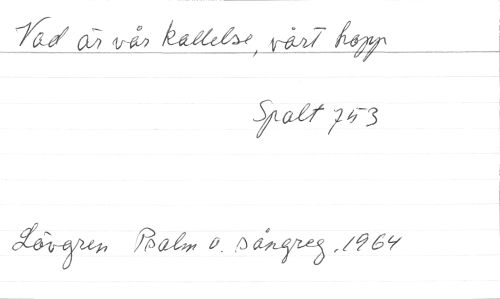 Vad är vår kallelse, vårt hopp
Spalt 753
Lövgren Psalm o. sångreg. 1964